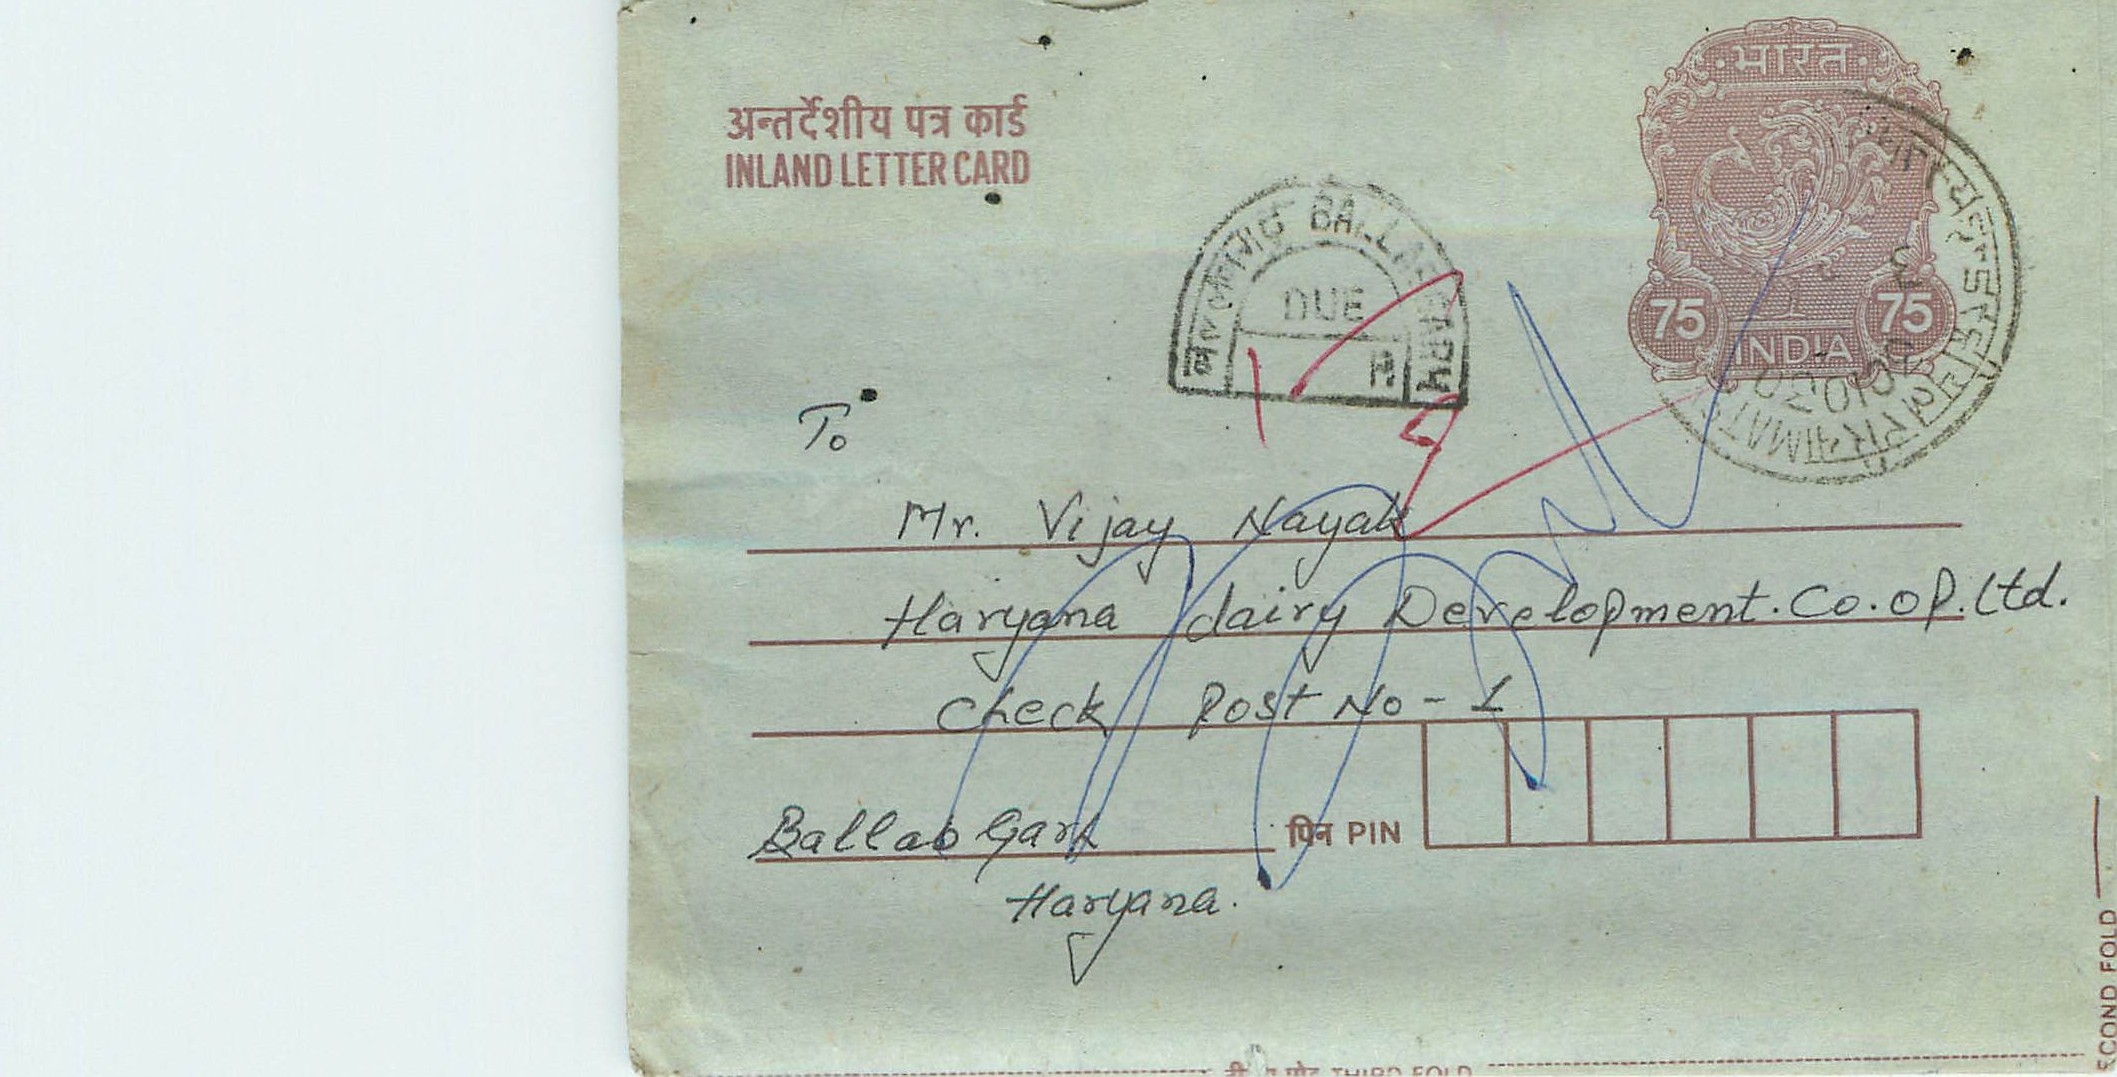 भारत
अन्तर्देशीय पत्र कार्ड
INLAND LETTER CARD
बल्लभगढ़ BALLABGARH
DUE
75 75
INDIA
To
Mr. Vijay Nayak
Haryana dairy Development. Co. op. Ltd.
Check Post No - 1
Ballab Garh
पिन PIN
Haryana.
THIRD FOLD
SECOND FOLD